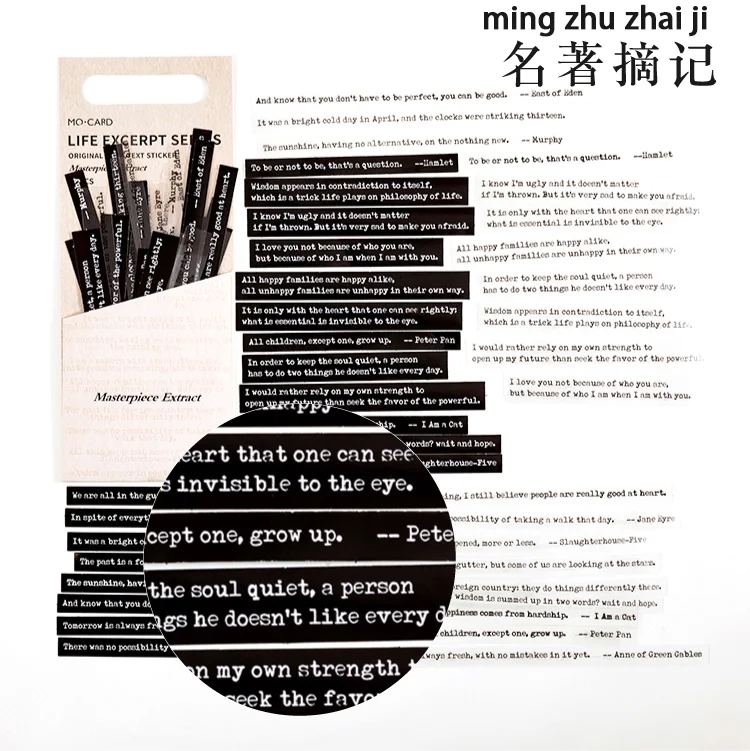 ming zhu zhai ji
名著摘记
MO·CARD
LIFE EXCERPT SE S
ORIGINAL EXT STICKER
Masterpiece Extract
Masterpiece Extract
And know that you don't have to be perfect, you can be good. -- East of Eden
It was a bright cold day in April, and the clocks were striking thirteen.
The sunshine, having no alternative, on the nothing new. -- Murphy
To be or not to be, that's a question. --Hamlet
To be or not to be, that's a question. --Hamlet
Wisdom appears in contradiction to itself,
which is a trick life plays on philosophy of life.
I know I'm ugly and it doesn't matter
if I'm thrown. But it's very sad to make you afraid.
I know I'm ugly and it doesn't matter
if I'm thrown. But it's very sad to make you afraid.
It is only with the heart that one can see rightly;
what is essential is invisible to the eye.
I love you not because of who you are,
but because of who I am when I am with you.
All happy families are happy alike,
all unhappy families are unhappy in their own way.
All happy families are happy alike,
all unhappy families are unhappy in their own way.
In order to keep the soul quiet, a person
has to do two things he doesn't like every day.
It is only with the heart that one can see rightly;
what is essential is invisible to the eye.
Wisdom appears in contradiction to itself,
which is a trick life plays on philosophy of life.
All children, except one, grow up. -- Peter Pan
I would rather rely on my own strength to
open up my future than seek the favor of the powerful.
In order to keep the soul quiet, a person
has to do two things he doesn't like every day.
I love you not because of who you are,
but because of who I am when I am with you.
I would rather rely on my own strength to
open up my future than seek the favor of the powerful.
ship. -- I Am a Cat
words? wait and hope.
aughterhouse-Five
happy
heart that one can see
s invisible to the eye.
cept one, grow up. -- Pete
the soul quiet, a person
gs he doesn't like every d
n my own strength t
seek the favo
We are all in the gu
In spite of everyt
It was a bright c
The past is a fo
The sunshine, hav
And know that you do
Tomorrow is always fr
There was no possibility
ing, I still believe people are really good at heart.
ossibility of taking a walk that day. --Jane Eyre
pened, more or less. -- Slaughterhouse-Five
gutter, but some of us are looking at the stars.
reign country: they do things differently there.
wisdom is summed up in two words? wait and hope.
ppiness comes from hardship. -- I Am a Cat
children, except one, grow up. -- Peter Pan
ways fresh, with no mistakes in it yet. -- Anne of Green Gables